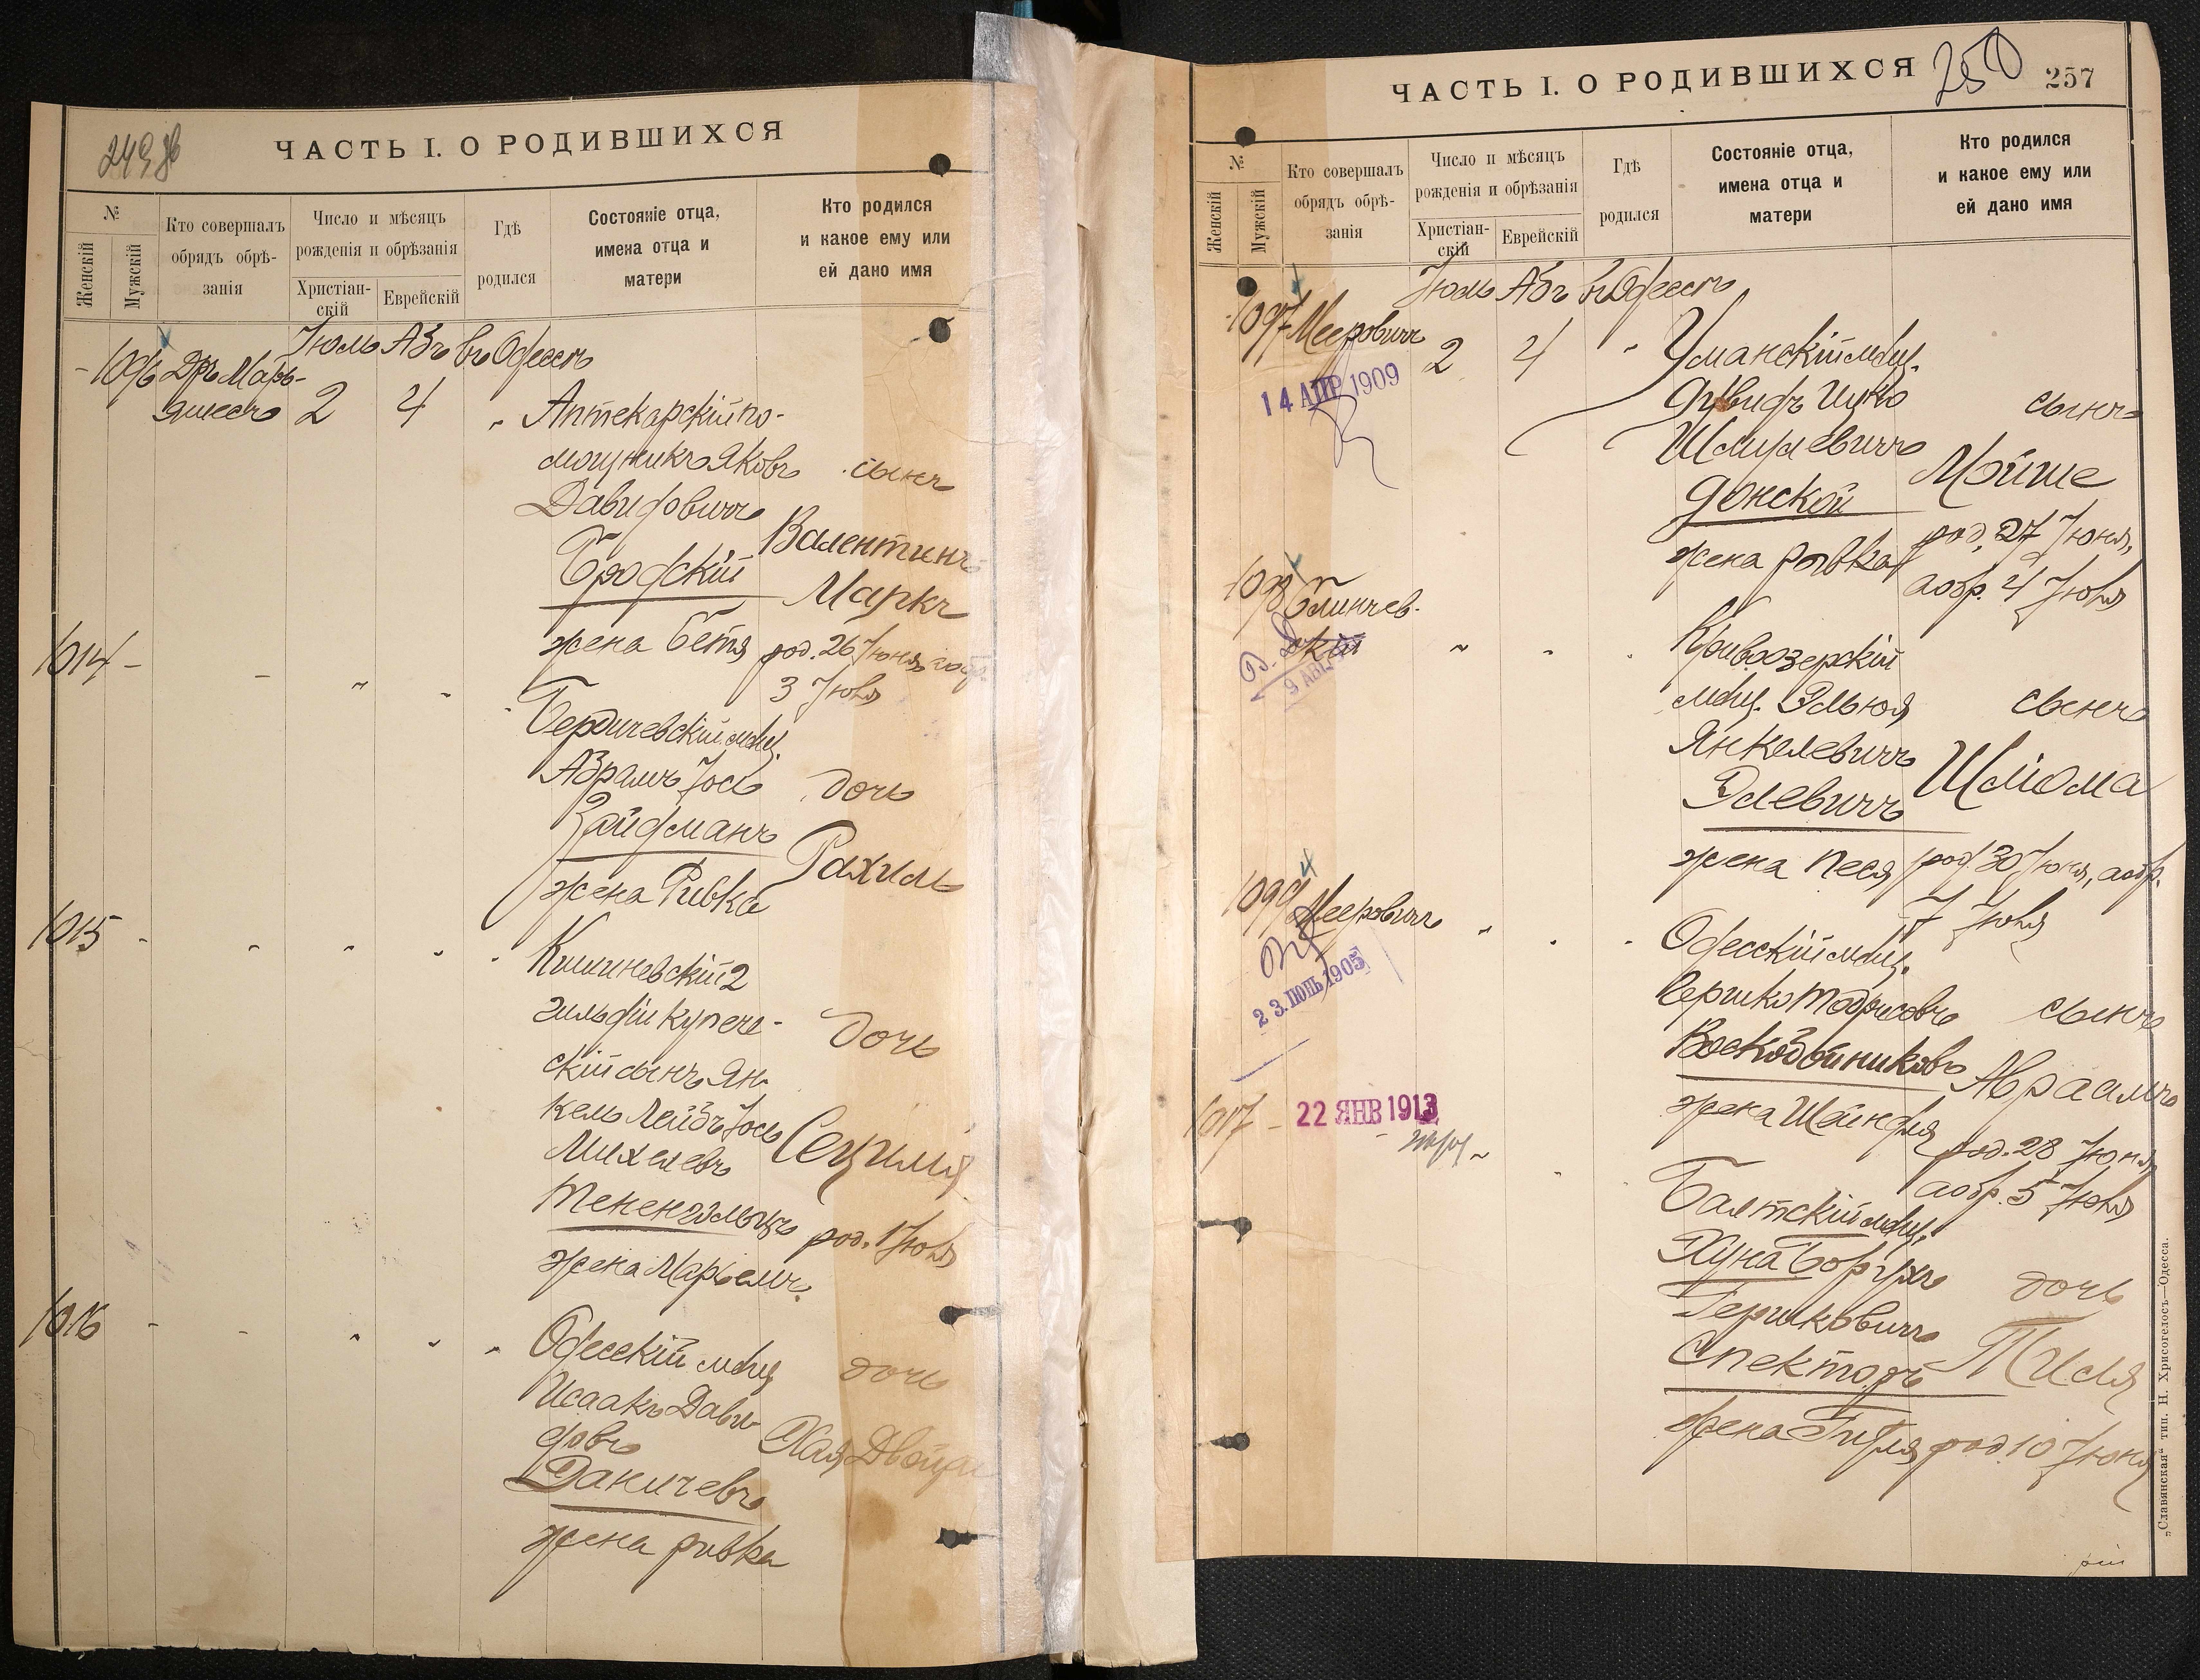 249
ЧАСТЬ I. О РОДИВШИХСЯ
№
Женскій
Мужскій
Кто совершалъ
обрядъ обрѣ-
занія
Число и мѣсяцъ
рожденія и обрѣзанія
Христіан-
скій
Еврейскій
Гдѣ
родился
Состояніе отца,
имена отца и
матери
Кто родился
и какое ему или
ей дано имя
Іюль Абъ въ Одессѣ
1096 Дръ Марь-
ямесъ 2 4 " Аптекарскій по-
мощникъ Яковъ сынъ
Давидовичъ
Бродскій Валентинъ
Маркъ
жена Бетя род. 26 Іюня, а обр.
3 Іюля
1014 - - " - "
Бердичевскій мѣщ.
Абрамъ Іось дочь
Зайдманъ
Рахиль
жена Ривка
1015 - - - - -
Кишиневскій 2
гильдіи купече- дочь
скій сынъ Ян-
кель Лейбъ Іось
Михелевъ Сецилія
Тененгольцъ род. 1 Іюля
жена Марьемъ.
1016 - - " - "
Одесскій мѣщ дочь
Исаакъ Дави-
довъ Хая Двойра
Даничевъ
жена Ривка
ЧАСТЬ I. О РОДИВШИХСЯ
250
257
№
Женскій
Мужскій
Кто совершалъ
обрядъ обрѣ-
занія
Число и мѣсяцъ
рожденія и обрѣзанія
Христіан-
скій
Еврейскій
Гдѣ
родился
Состояніе отца,
имена отца и
матери
Кто родился
и какое ему или
ей дано имя
Іюль Абъ въ Одессѣ
1097 Мееровичъ 2 4 " Уманскій мѣщ.
14 АПР 1909
Дувидъ Ицко сынъ
Шмулевичъ
Донской Мойше
жена Ривка род. 27 Іюня,
а обр. 4 Іюля
1098 Блинчев-
скій " - .
9 АВГ
Кривоозерскій
мѣщ. Эльюя сынъ
Янкелевичъ
Элевичъ Шліома
жена Песя род. 30 Іюня, а обр.
7 Іюля
1099 Мееровичъ " . -
23. ІЮНЬ 1905
Одесскій мѣщ.
Гершко Тодрисовъ сынъ
Воскобойниковъ Авраамъ
жена Шейндля род. 28 Іюня,
а обр. 5 Іюля
1017 - 22 ЯНВ 1913
Балтскій мѣщ.
Хуна Борухъ дочь
Гершковичъ
Спекторъ
жена Гитля род. 10 Іюня
„Славянская“ тип. Н. Хрисогелосъ—Одесса.